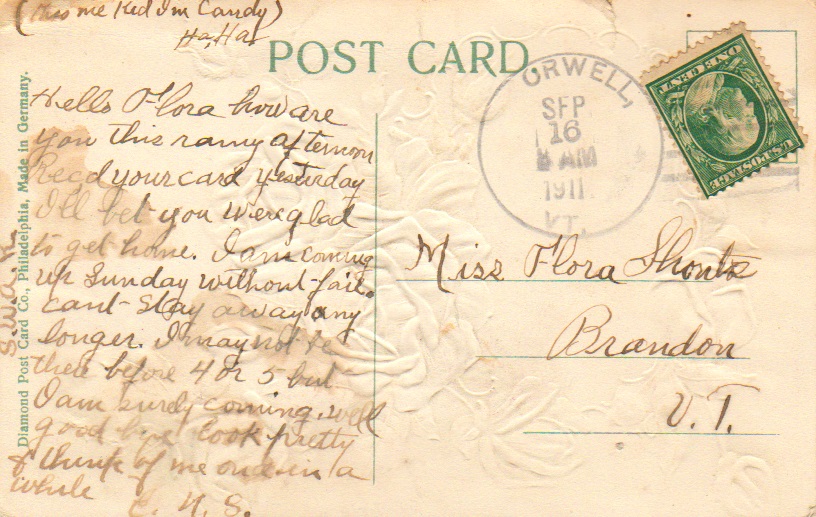 (Kiss me Kid I'm Candy)
Ha, Ha,
POST CARD.
Hello Flora how are
you this rainy afternoon
Recd your card yesterday
I'll bet you were glad
to get home. I am coming
up Sunday without fail.
cant stay away any
longer. I may not be
there before 4 or 5 but
I am surely coming. well
good bye look pretty
& think of me once in a
while
C. N. S.
S.W.A.K.
Diamond Post Card Co., Philadelphia, Made in Germany.
ORWELL,
SEP
16
8 AM
1911
VT.
U.S. POSTAGE
ONE CENT
Miss Flora Shontz
Brandon
V.T.